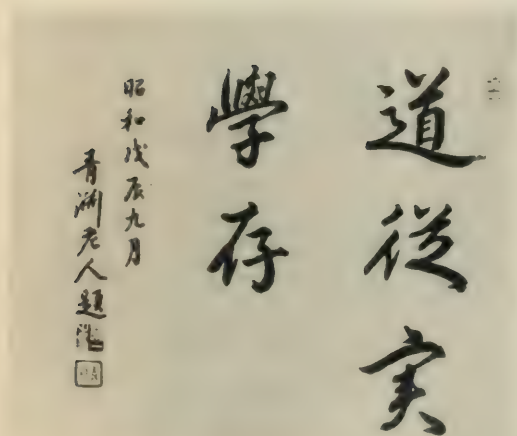 道従実
學存
昭和戊辰九月
青淵老人題